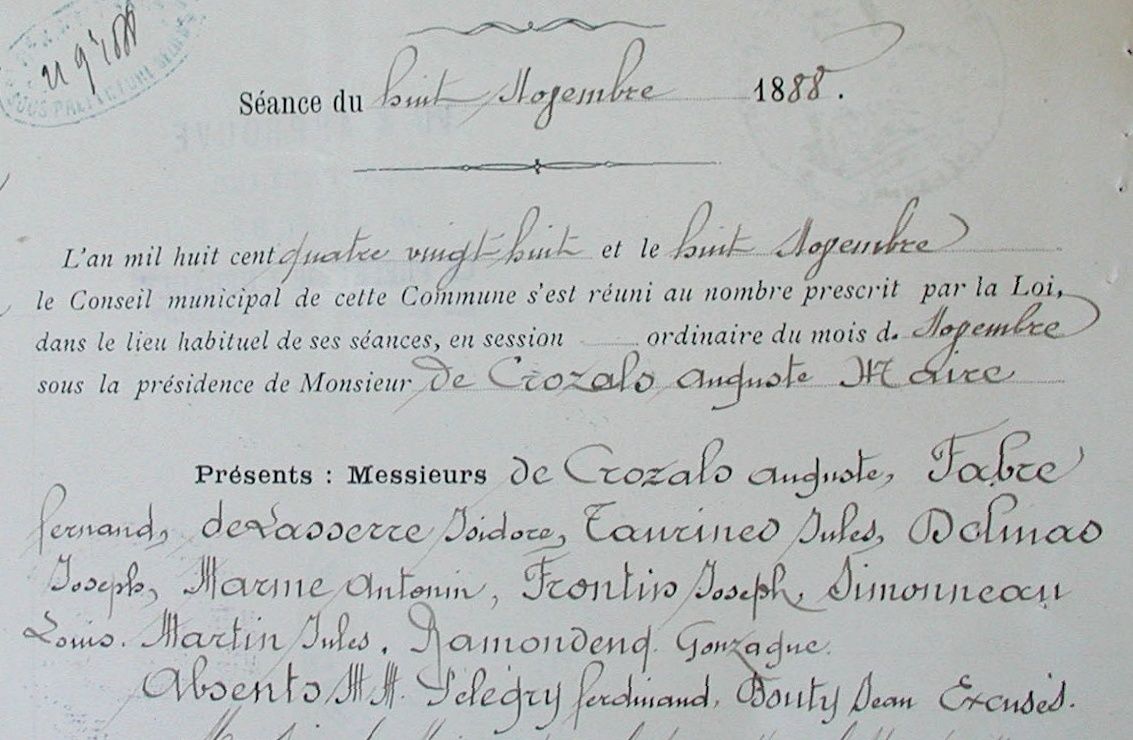 21 9bre 1888
SOUS PRÉFECTURE
Séance du huit Novembre 1888.
L'an mil huit cent quatre vingt huit et le huit Novembre
le Conseil municipal de cette Commune s'est réuni au nombre prescrit par la Loi,
dans le lieu habituel de ses séances, en session ordinaire du mois d. Novembre
sous la présidence de Monsieur de Crozals auguste Maire
Présents : Messieurs de Crozals auguste, Fabre
fernand, de Lasserre Isidore, Taurines Jules, Dalmas
Joseph, Marme Antonin, Frontin Joseph, Simonneau
Louis. Martin Jules. Ramondenq. Gonzague.
Absents MM. Pélégry ferdinand, Bouty Jean Excusés.